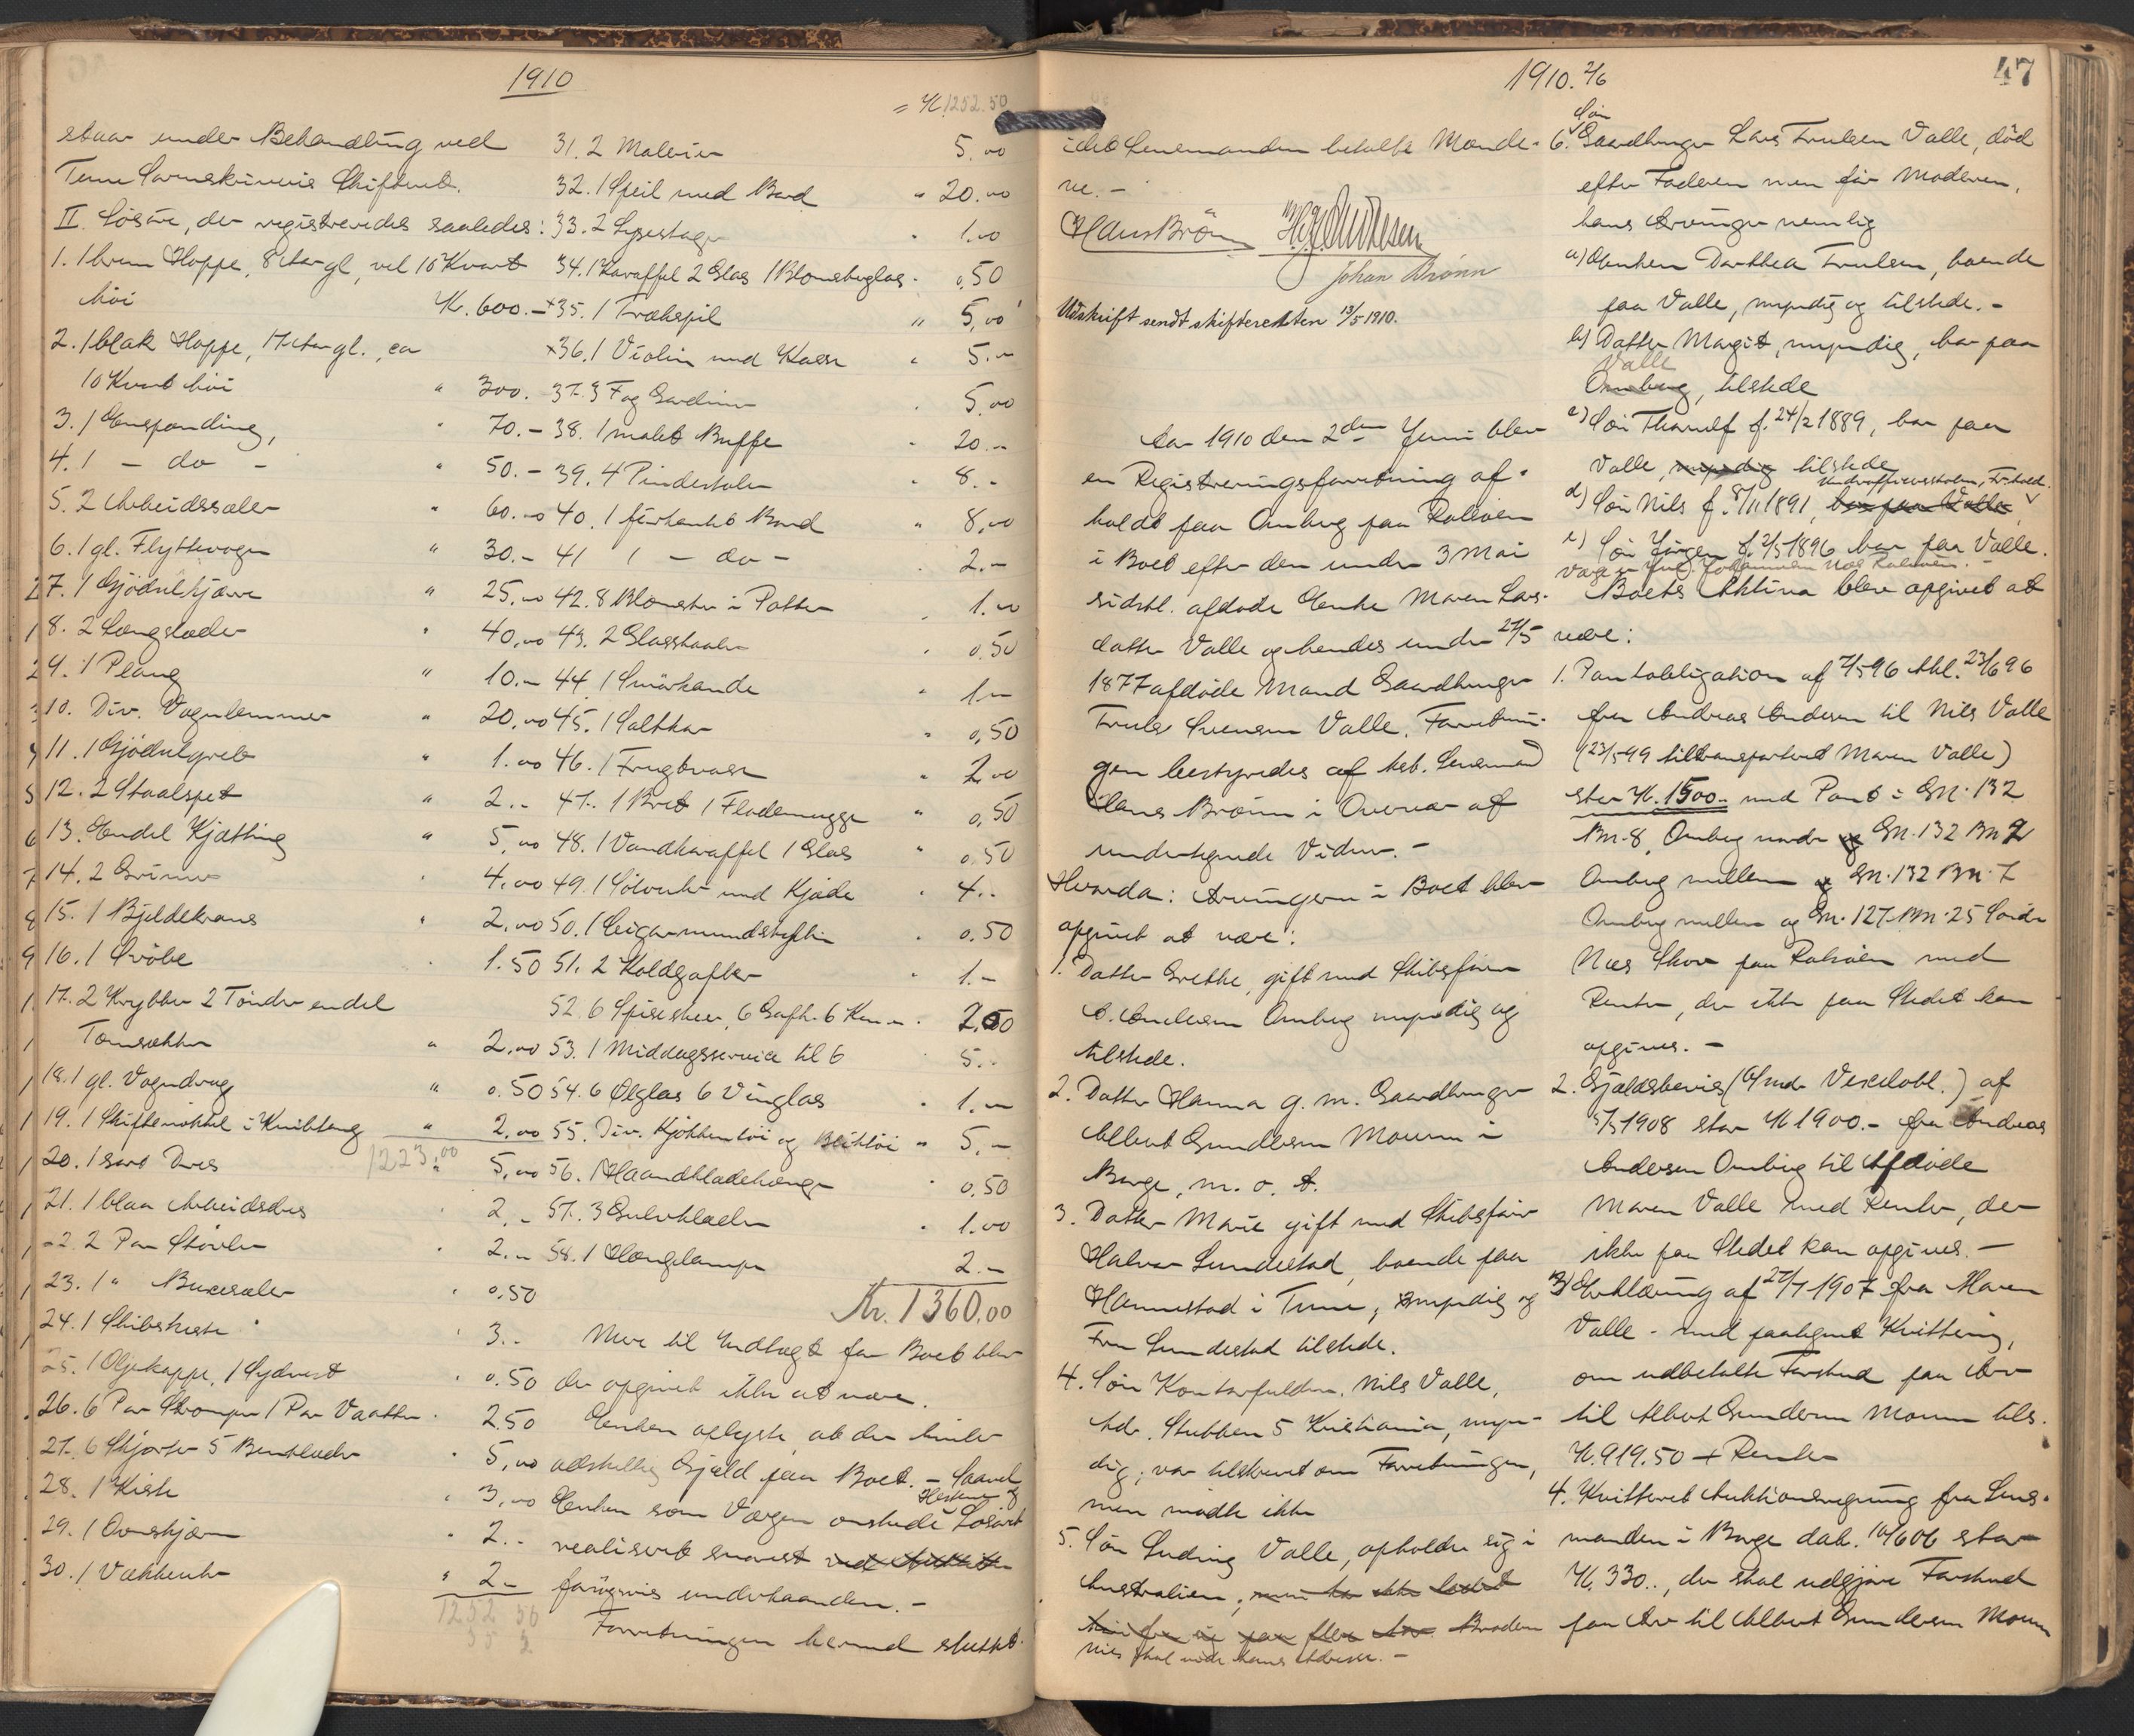 1910
= Kr. 1252.50
staar under Behandling ved
Tune Sorenskriveris Skifteret.
II. Løsøre, der registreredes saaledes:
1. 1 brun Hoppe, 8 Aar gl, vel 10 Kvart
høi Kr. 600.-
2. 1 blak Hoppe, 17 Aar gl., ca
10 Kvart høi " 300.
3. 1 Enspænding, " 70.-
4. 1 - do - " 50.-
5. 2 Arbeidssæler " 60.00
6. 1 gl. Flyttevogn " 30.-
7. 1 Gjødselkjærre " 25.00
8. 2 Langslæder " 40.00
9. 1 Ploug " 10.-
10. Div. Vognlemmer " 20.00
11. 1 Gjødselgreb " 1.00
12. 2 Staalspet " 2..
13. Endel Kjætting " 5.00
14. 2 Grimer " 4.00
15. 1 Bjeldekrans " 2.00
16. 1 Svøbe " 1.50
17. 2 Krybber 2 Tønder endel
Tomsækker " 2.00
18. 1 gl. Vogndrag " 0.50
19. 1 Skiftenøkkel i Knibtang " 2.00
1223.00
20. 1 sort Dres " 5.00
21. 1 blaa Arbeidsdres " 2.-
22. 2 Par Støvler " 2.-
23. 1 " Buxesæler " 0.50
24. 1 Skibskiste " 3..
25. 1 Oljekappe, 1 Sydvest " 0.50
26. 6 Par Strømper 1 Par Vaatter " 2.50
27. 6 Skjorter 5 Benklæder " 5.00
28. 1 Kiste " 3.00
29. 1 Ovnskjærm " 2..
30. 1 Vækkeuhr " 2.-
1252 50
31. 2 Malerier 5.00
32. 1 Speil med Bord " 20.00
33. 2 Lysestager " 1.00
34. 1 Karaffel 2 Glas 1 Blomsterglas " 0.50
+35. 1 Trækspil " 5.00
+36. 1 Violin med Kasse " 5.-
37. 3 Fag Gardiner " 5.00
38. 1 malet Buffe " 20.-
39. 4 Pindestole " 8.-
40. 1 firkantet Bord " 8.00
41 1 - do - " 2.-
42. 8 Blomster i Potter " 1.00
43. 2 Glasskaaler " 0.50
44. 1 Smørkande " 1.-
45. 1 Saltkar " 0.50
46. 1 Frugtvase " 2.00
47. 1 Bret 1 Flødemugge " 0.50
48. 1 Vandkaraffel 1 Glas " 0.50
49. 1 Sølvuhr med Kjæde " 4..
50. 1 Cigarmundstykke " 0.50
51. 2 Koldgafler " 1.-
52. 6 Spiseskeer, 6 Gafl. 6 Kn.. " 2.50
53. 1 Middagsservice til 6 5..
54. 6 Ølglas 6 Vinglas " 1.-
55. Div. Kjøkkentøi og Bliktøi " 5.-
56. 1 Haandklædehænger " 0.50
57. 3 Gulvklæder " 1.00
58. 1 Hængelampe 2.-
Kr. 1360.00
Mere til Indtægt for Boet blev
der opgivet ikke at være.
Enken oplyste, at der hviler
adskillig Gjæld paa Boet. - Saavel
Enken som Værgen ønskede Hestene og Løsøret
realiseret snarest
forøgvis underhaanden. -
Forretningen hermed sluttet.
idet Lensmanden betalte Mænde-
ne. -
Hans Brønn
Johan Brønn
Udskrift sendt skifteretten 13/5 1910.
1910. 2/6
47
Aar 1910 den 2den Juni blev
en Registreringsforretning af-
holdt paa Omberg paa Rolsøen
i Boet efter den under 3 Mai
sidstl. afdøde Enke Maren Lars-
datter Valle og hendes under 27/5
1877 afdøde Mand Gaardbruger
Truls Svensen Valle. Forretnin-
gen bestyredes af kst. Lensmand
Hans Brønn i Overvær af
undertegnede Vidner. -
Hvorda: Arvingerne i Boet blev
opgivet at være:
1. Datter Grethe, gift med Skibsfører
A. Andersen Omberg myndig og
tilstede.
2. Datter Hanna g. m. Gaardbruger
Albert Gundersen Moum i
Borge, m. o. t.
3. Datter Marie gift med Skibsfører
Halvor Sundestad, boende paa
Hannestad i Tune, myndig og
Fru Sundestad tilstede.
4. Søn Kontorfuldm. Nils Valle,
Adr. Stubben 5 Kristiania, myn-
dig; var tilskrevet om Forretningen,
men mødte ikke
5. Søn Ludvig Valle, opholder sig i
Australien, men har ikke ladet
Broderen
Nils skal vide hans Adresse. -
Søn
6. Gaardbruger Lars Trulsen Valle, død
efter Faderen men før Moderen,
hans Arvinger nemlig
a) Enken Dorthea Trulsen, boende
paa Valle, myndig og tilstede. -
b) Datter Margit, myndig, bor paa
Valle
Omberg, tilstede
c) Søn Thorulf f. 24/2 1889, bor paa
Valle, myndig tilstede
Underofficersskolen, Fr.hald.
d) Søn Nils f. 8/11 1891, bor paa Valle
e) Søn Jørgen f. 2/5 1896 bor paa Valle.
Boets Aktiva blev opgivet at
være:
1. Pantobligation af 7/5 96 thl. 23/6 96
fra Andreas Andersen til Nils Valle
(23/5 99 tiltransporteret Maren Valle)
stor Kr. 1500.- med Pant i Gn. 132
Bn. 8, Omberg nordre og Gn. 132 Bn 2
Omberg mellem og Gn. 132 Bn. 7
Omberg mellem og Gn. 127 Bn. 25 Søndre
Næs Skov paa Rolsøen med
Renter, der ikke paa Stedet kan
opgives. -
2. Gjældsbevis (Under Vexelobl.) af
5/5 1908 stor Kr 1900.- fra Andreas
Andersen Omberg til Afdøde
Maren Valle med Renter, der
ikke paa Stedet kan opgives. -
3) Erklæring af 27/7 1907 fra Maren
Valle - med paategnet Kvittering,
om udbetalte Forskud paa Arv
til Albert Gundersen Moum tils.
Kr. 919.50 + Renter
4. Kvitteret Auktionsregning fra Lens-
manden i Borge dat. 10/6 06 stor
Kr. 330.., der skal udgjøre Forskud
paa Arv til Albert Gundersen Moum